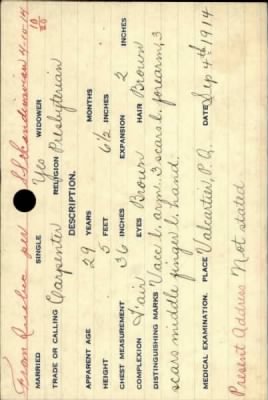 From Quebec per SS Scandinavian 4-10-14
10
20
MARRIED SINGLE Yes WIDOWER
TRADE OR CALLING Carpenter RELIGION Presbyterian
DESCRIPTION.
APPARENT AGE 29 YEARS MONTHS
HEIGHT 5 FEET 6½ INCHES
CHEST MEASUREMENT 36 INCHES EXPANSION 2 INCHES
COMPLEXION Fair EYES Brown HAIR Brown
DISTINGUISHING MARKS Vacc l. arm. 3 scars l. forearm, 3
scars middle finger l. hand.
MEDICAL EXAMINATION. PLACE Valcartier, P.Q. DATE Sep 4th 1914
Present Address Not stated